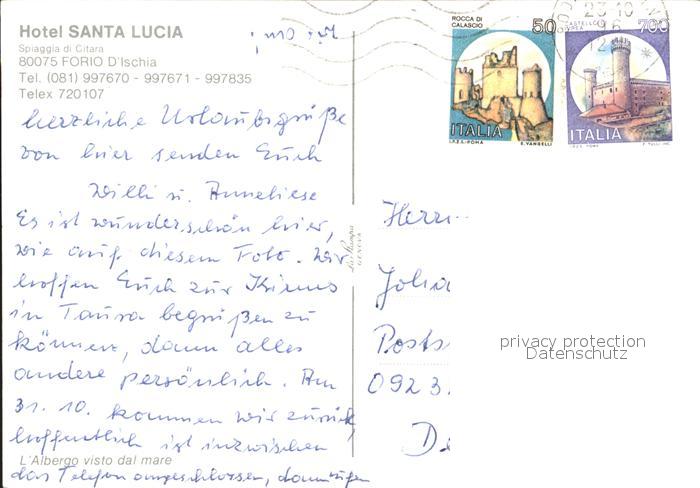 Hotel SANTA LUCIA
Spiaggia di Citara
80075 FORIO D'Ischia
Tel. (081) 997670 - 997671 - 997835
Telex 720107
herzliche Urlaubsgrüße
von hier senden Euch
Willi u. Anneliese
Es ist wunderschön hier,
wie auf diesem Foto. Wir
hoffen Euch zur Kirmes
in Taura begrüßen zu
können, dann alles
andere persönlich. Am
31. 10. kommen wir zurück,
hoffentlich ist inzwischen
das Telefon angeschlossen, dann
L'Albergo visto dal mare
La Stampa
GENOVA
ROCCA DI
CALASCIO
50
ITALIA
I.P.Z.S.-ROMA E. VANGELLI
700
ITALIA
I.P.Z.S.-ROMA F. TULLI INC.
23 10
96
12
Herrn
Joha
Posts
0923
De
privacy protection
Datenschutz